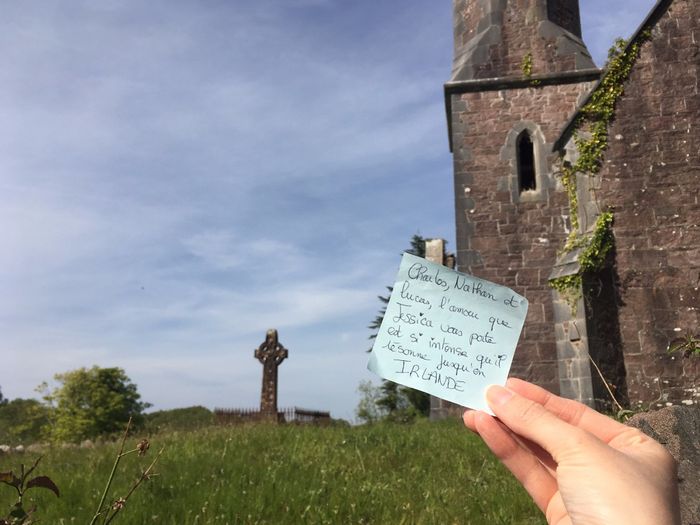 Charles, Nathan et
lucas, l'amour que
Jessica vous porte
est si intense qu'il
résonne jusqu'en
IRLANDE